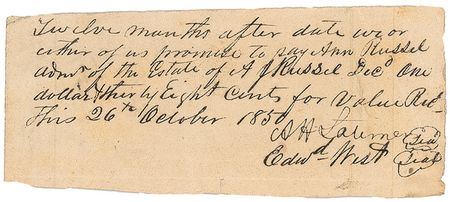 Twelve months after date we or
either of us promise to pay Ann Russel
admr of the Estate of A J Russel Decd One
dollar & thirty Eight Cents for Value Recd
This 26th October 1850
A H Latimer Seal
Edwd West Seal